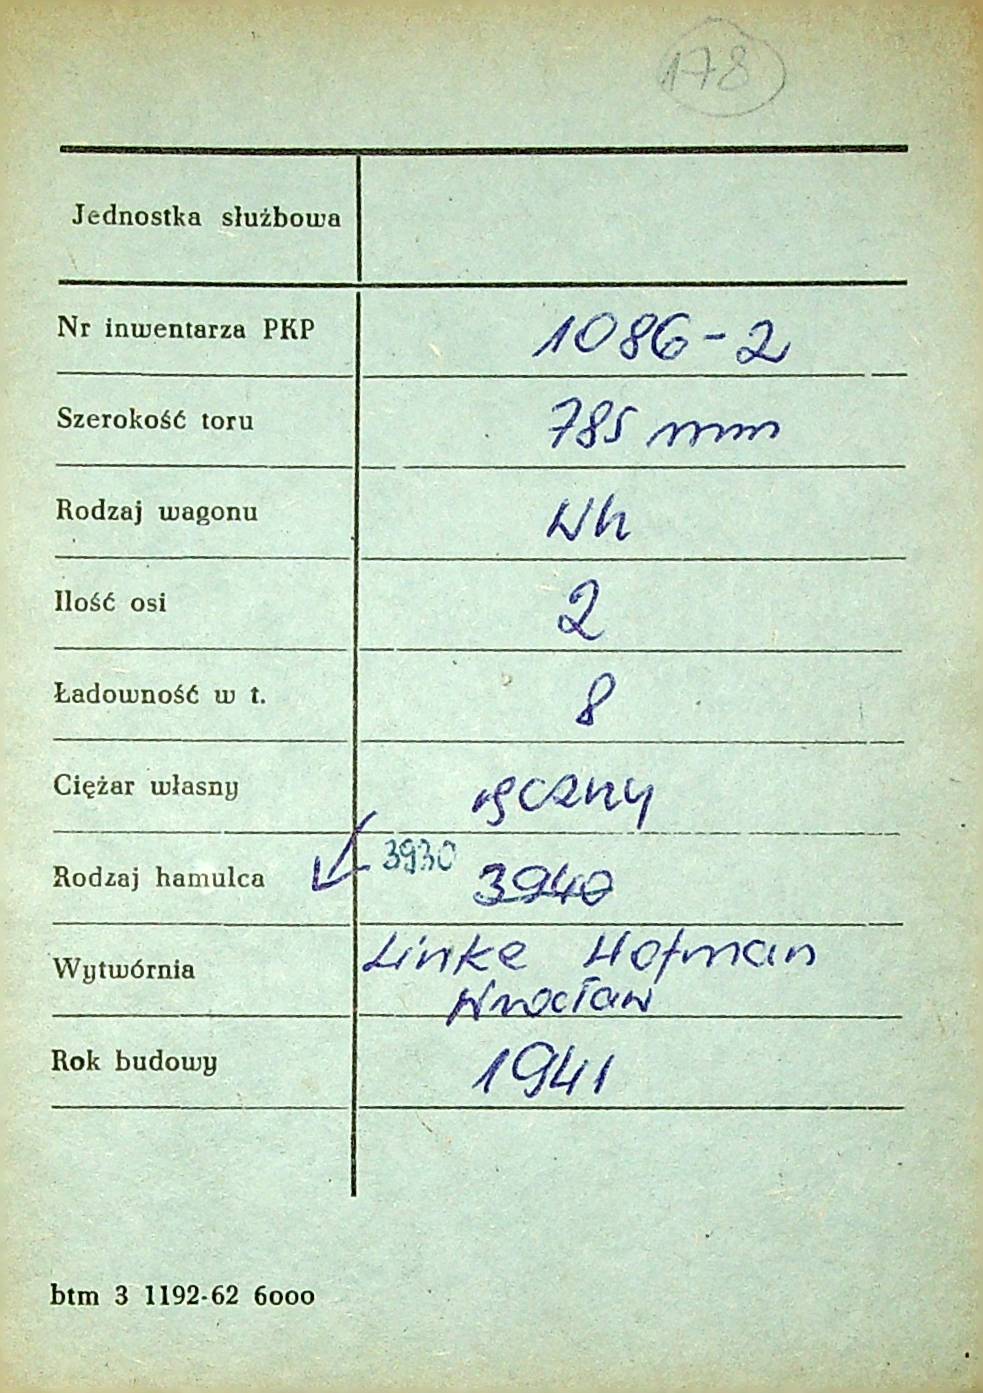 178
Jednostka służbowa
Nr inwentarza PKP 1086-2
Szerokość toru 785 mm
Rodzaj wagonu Wh
Ilość osi 2
Ładowność w t. 8
Ciężar własny ręczny
Rodzaj hamulca 3930 3940
Wytwórnia Linke Hofman
Wrocław
Rok budowy 1941
btm 3 1192-62 6000